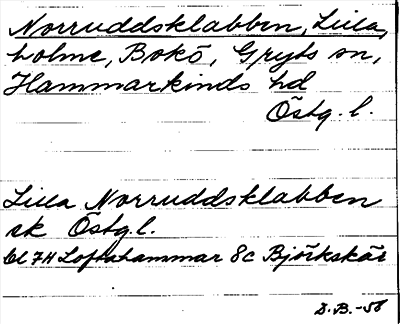 Norruddsklabben, Lilla,
holme, Bokö, Gryts sn,
Hammarkinds hd
Östg. l.
Lilla Norruddsklabben
sk Östg. l.
bl 7H Loftahammar 8c Björkskär
D. B. -56